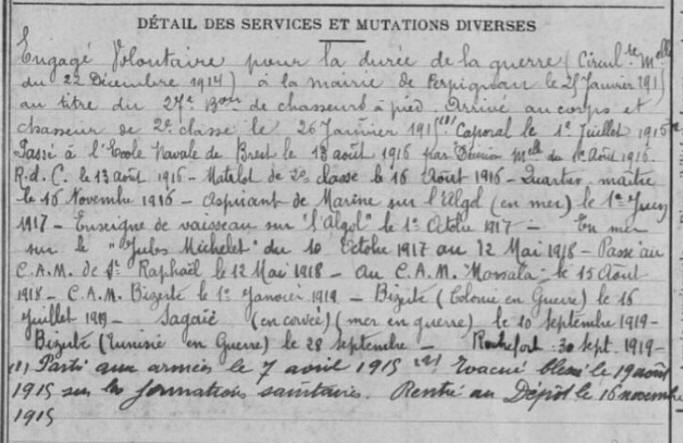 DÉTAIL DES SERVICES ET MUTATIONS DIVERSES
Engagé Volontaire pour la durée de la guerre (Circul re Melle
du 22 Décembre 1914) à la mairie de Perpignan le 25 Janvier 1915
au titre du 27e Bon de chasseurs à pied. Arrivé au corps et
chasseur de 2e classe le 26 Janvier 1915 (1) Caporal le 1er Juillet 1916
Passé à l'Ecole Navale de Brest le 13 août 1916 par Melle du 1er Août 1916.
R.d.C. le 13 août 1916 - Matelot de 2e classe le 16 Août 1916 - Quartier maître
le 16 Novembre 1916 - Aspirant de Marine sur l'Algol (en mer) le 1er Juin
1917 - Enseigne de vaisseau sur "l'Algol" le 1er Octobre 1917 - En mer
sur le "Jules Michelet" du 10 Octobre 1917 au 12 Mai 1918 - Passé au
C.A.M. de St Raphaël le 12 Mai 1918 - au C.A.M. le 15 Août
1918 - C.A.M. Bizerte le 1er Janvier 1919 - Bizerte (Colonie en Guerre) le 16
Juillet 1919 - Sagaie (en corvée) (mer en guerre) le 10 septembre 1919 -
Bizerte (Tunisie en Guerre) le 28 septembre - Rochefort 30 sept. 1919 -
(1) Parti aux armées le 7 avril 1915 Evacué blessé le 19 août
1915 sur les formations sanitaires. Rentré au Dépôt le 16 novembre
1915